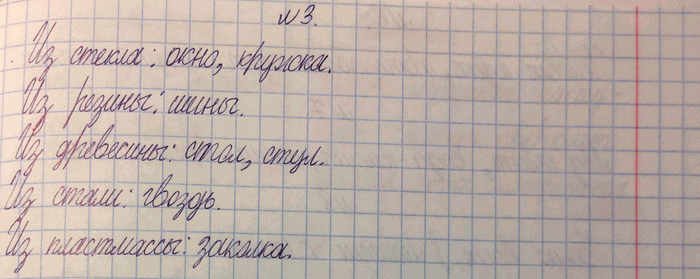 №3.
Из стекла: окно, кружка.
Из резины: шины.
Из древесины: стол, стул.
Из стали: гвоздь.
Из пластмассы: заколка.